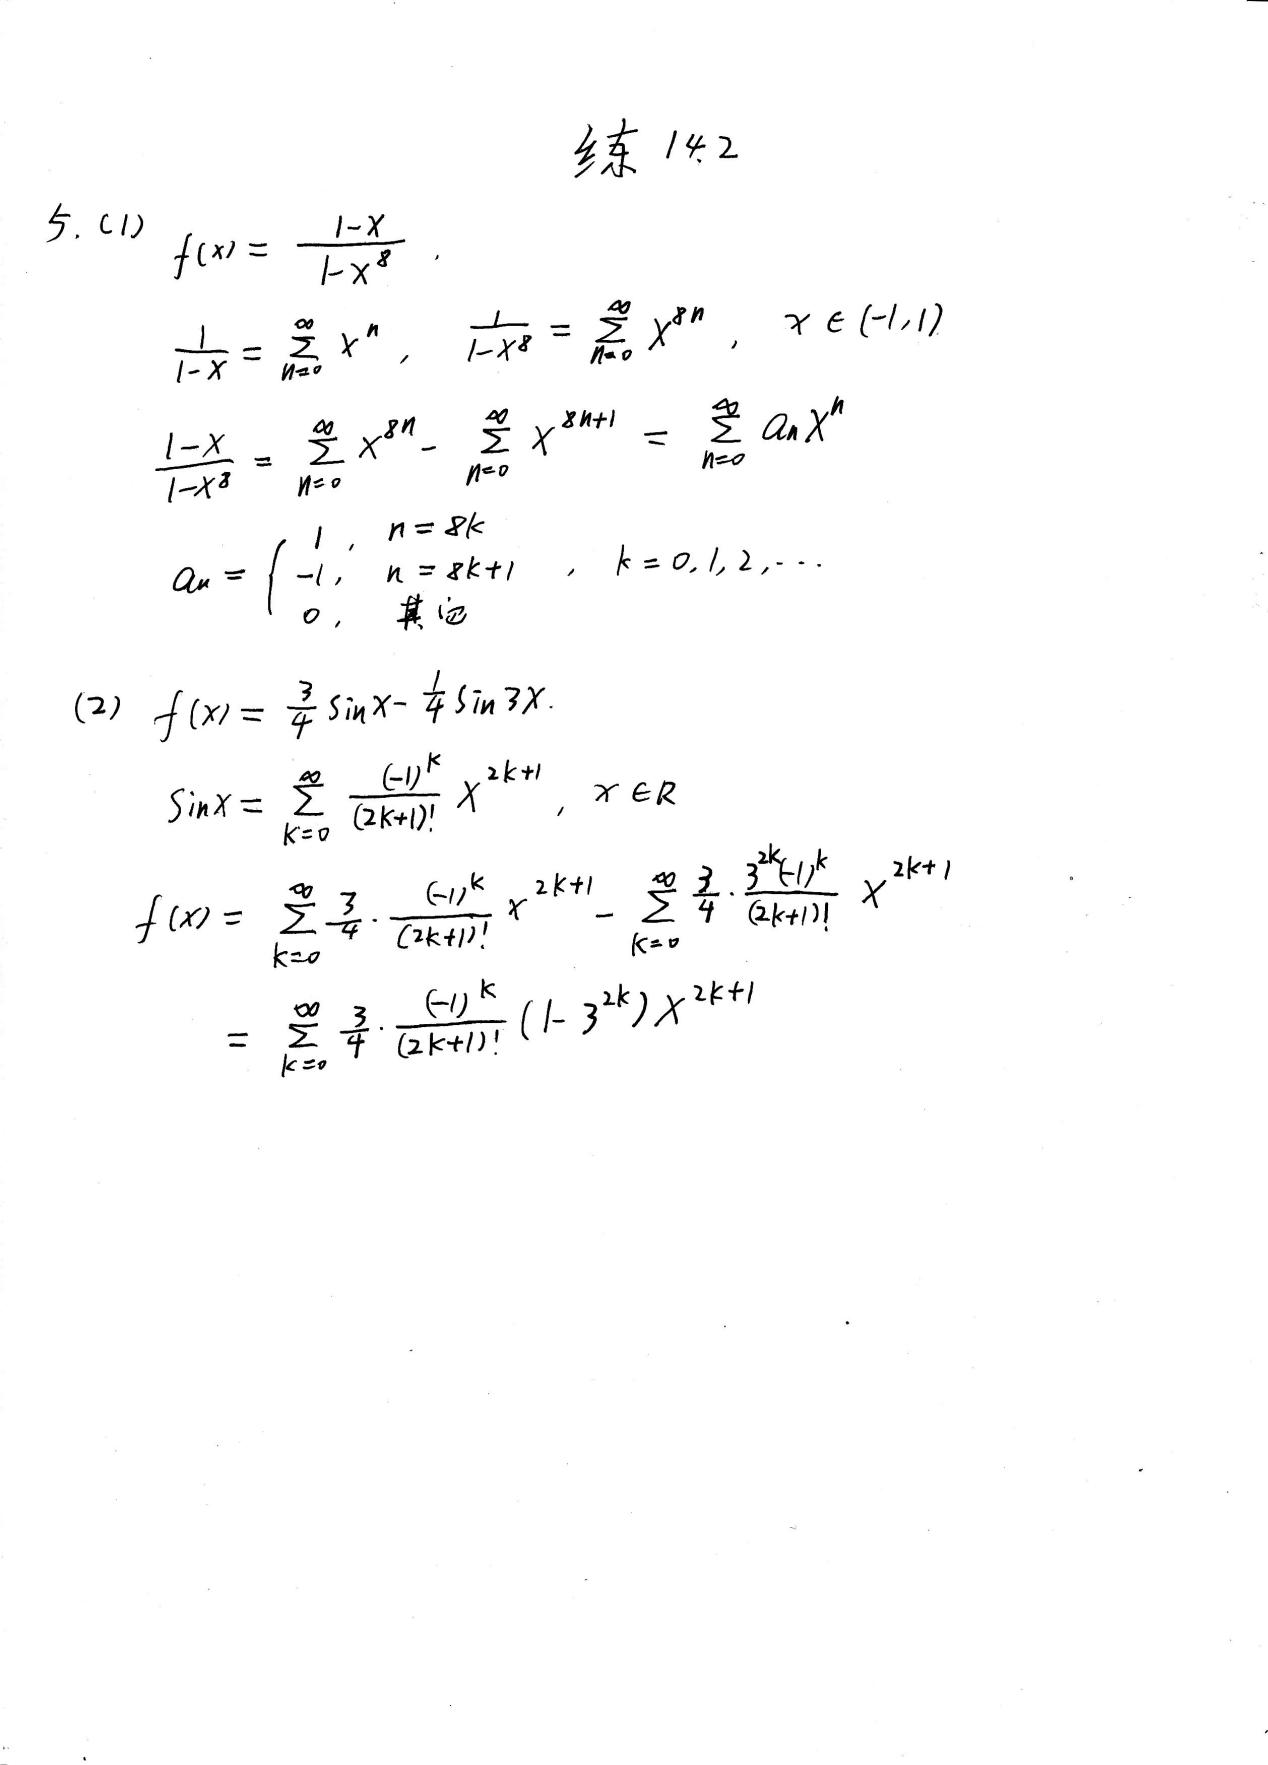 练 14.2
5. (1) f(x) = \frac{1-x}{1-x^8} .
\frac{1}{1-x} = \sum_{n=0}^{\infty} x^n , \frac{1}{1-x^8} = \sum_{n=0}^{\infty} x^{8n} , x ∈ (-1,1)
\frac{1-x}{1-x^8} = \sum_{n=0}^{\infty} x^{8n} - \sum_{n=0}^{\infty} x^{8n+1} = \sum_{n=0}^{\infty} a_n x^n
a_n = { 1, n = 8k
-1, n = 8k+1 , k = 0, 1, 2, ...
0, 其它
(2) f(x) = \frac{3}{4} sin x - \frac{1}{4} sin 3x.
sin x = \sum_{k=0}^{\infty} \frac{(-1)^k}{(2k+1)!} x^{2k+1} , x ∈ R
f(x) = \sum_{k=0}^{\infty} \frac{3}{4} · \frac{(-1)^k}{(2k+1)!} x^{2k+1} - \sum_{k=0}^{\infty} \frac{3}{4} · \frac{3^{2k}(-1)^k}{(2k+1)!} x^{2k+1}
= \sum_{k=0}^{\infty} \frac{3}{4} · \frac{(-1)^k}{(2k+1)!} (1-3^{2k}) x^{2k+1}